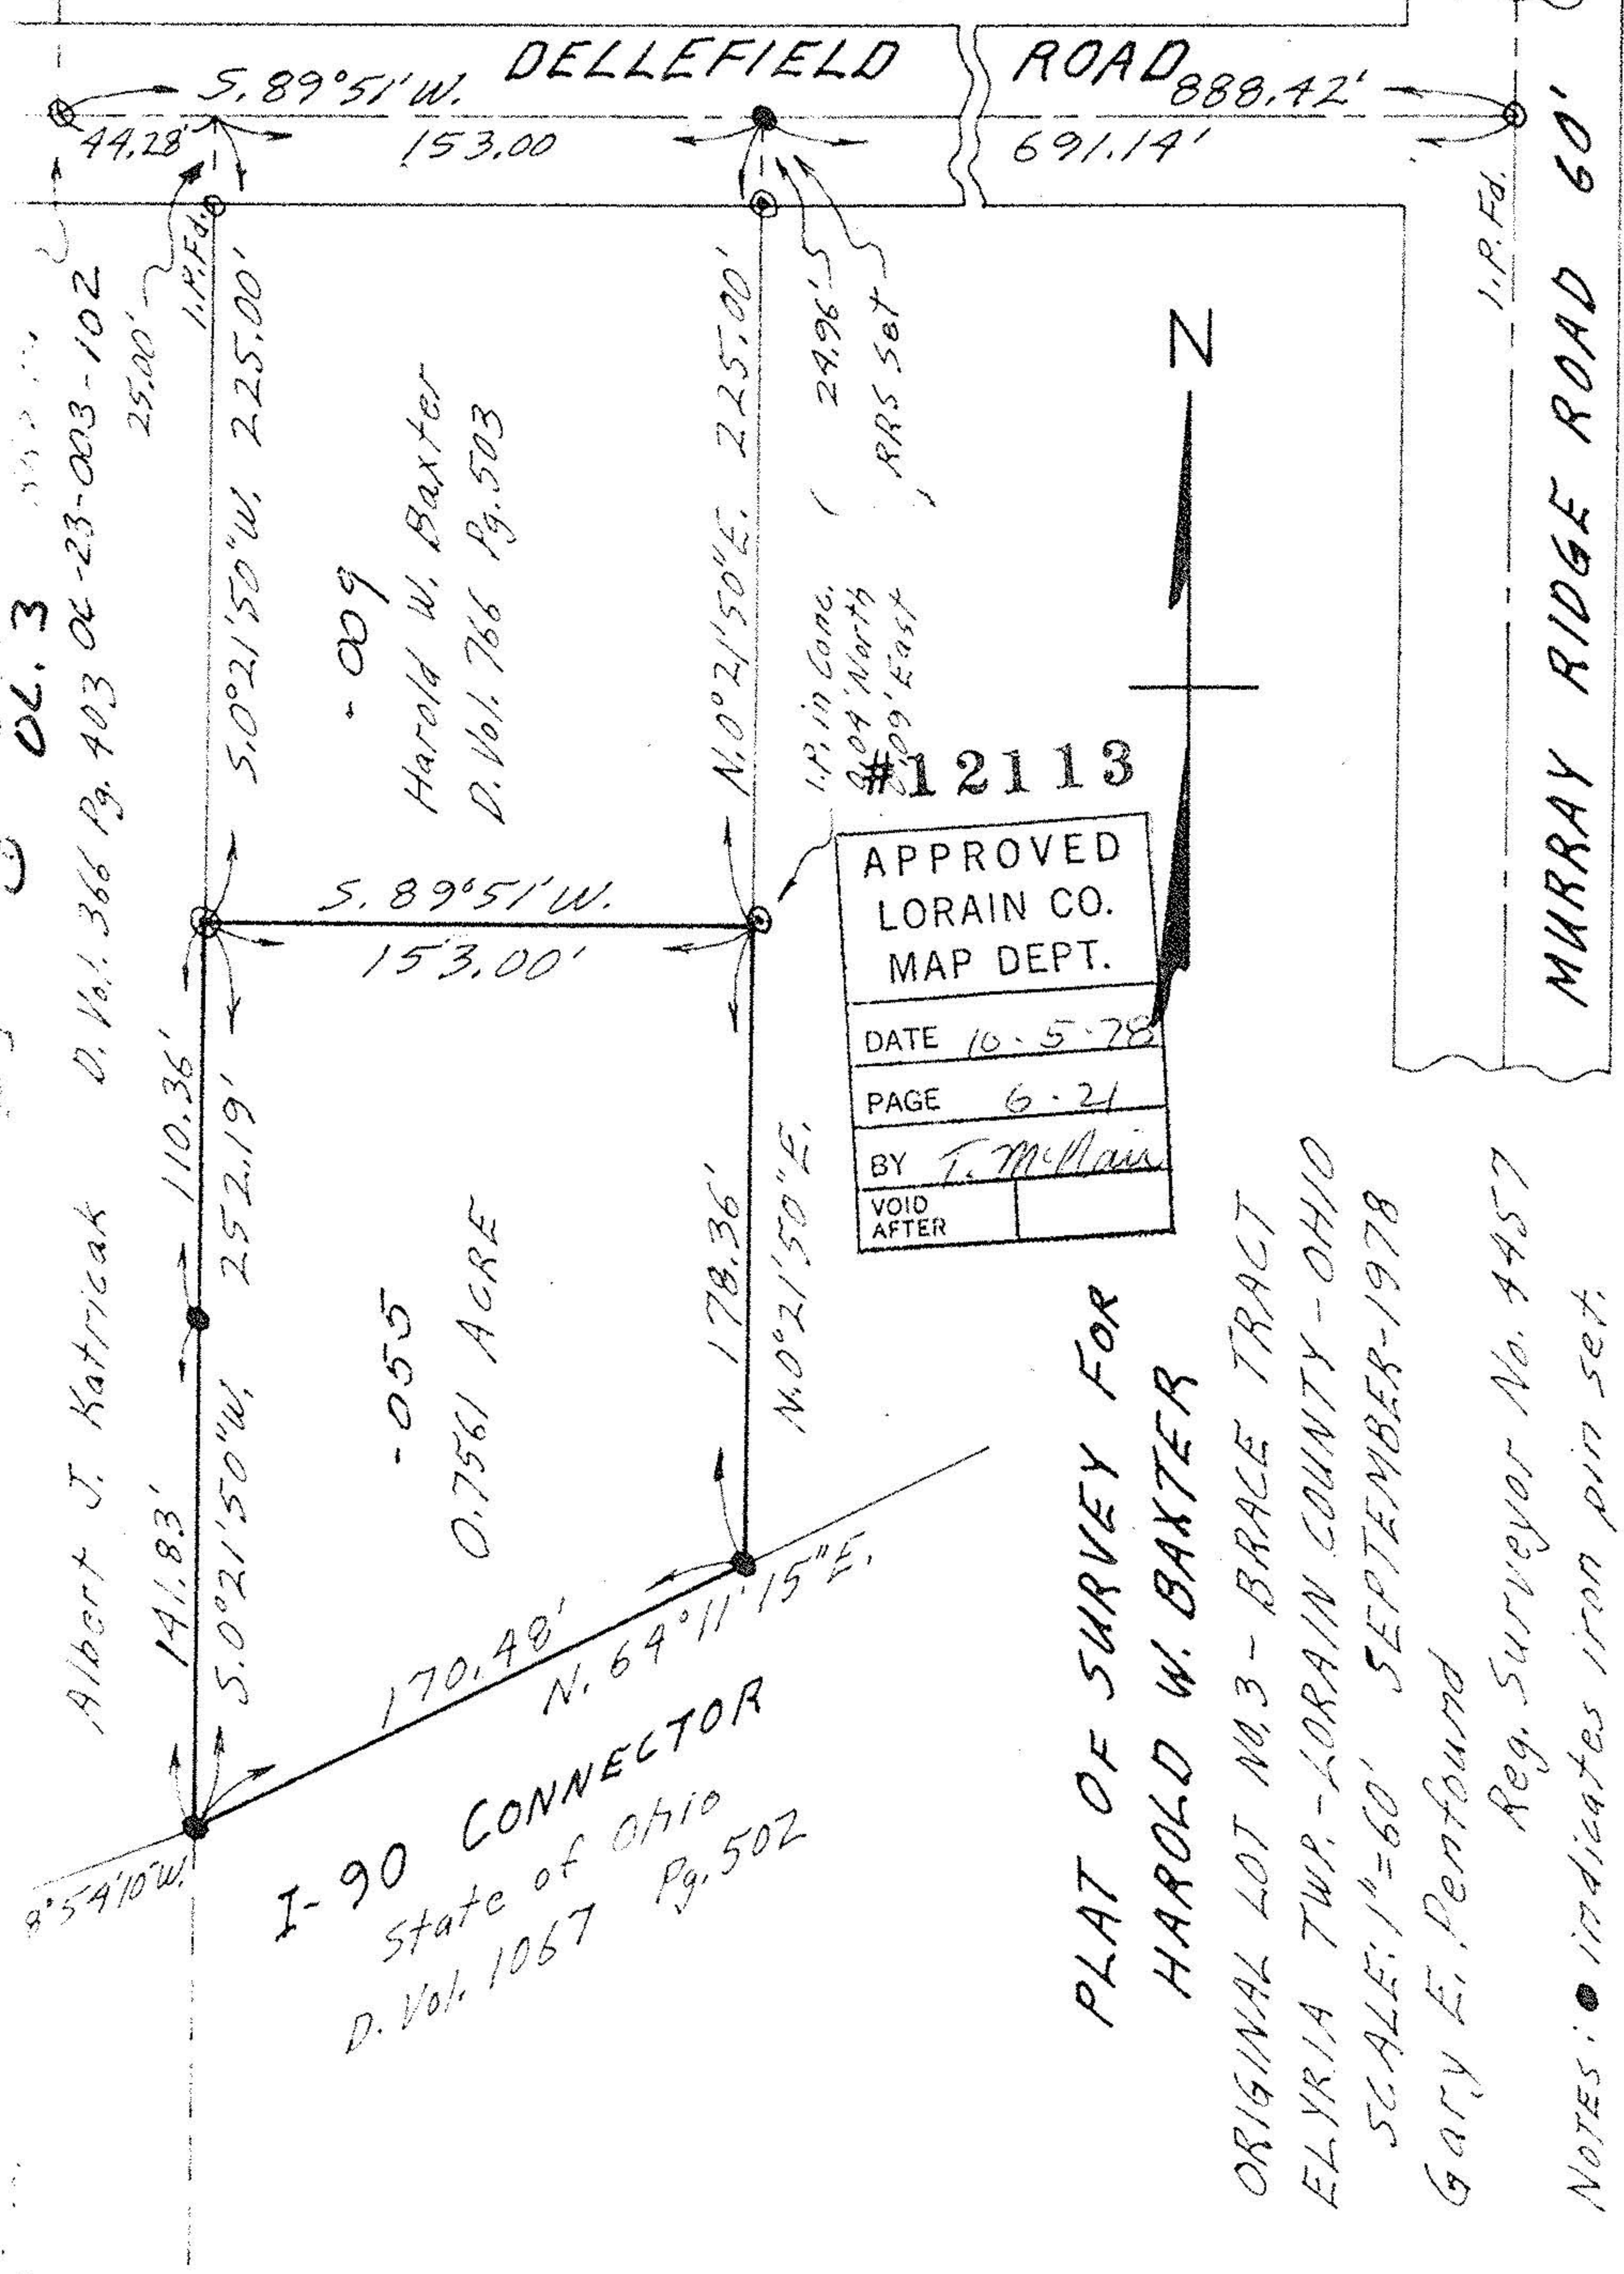 DELLEFIELD ROAD
S. 89°51' W.
888.42'
44.28'
153.00
691.14'
OL. 3
D. Vol. 366 Pg. 403
-23-003-102
25.00'
I.P. Fd.
S. 0°21'50" W. 225.00'
- 009
Harold W. Baxter
D. Vol. 766 Pg. 503
N. 0°21'50" E. 225.00'
24.96'
RRS Set
I.P. in Conc.
0.04' North
0.09' East
N
I.P. Fd.
MURRAY RIDGE ROAD 60'
S. 89°51' W.
153.00'
#12113
APPROVED
LORAIN CO.
MAP DEPT.
DATE 10-5-78
PAGE 6-21
BY T. McNair
VOID
AFTER
Albert J. Katricak
141.83'
110.36'
S. 0°21'50" W. 252.19'
- 055
0.7561 ACRE
178.36'
N. 0°21'50" E.
170.48'
N. 64°11'15" E.
8°54'10" W.
I-90 CONNECTOR
State of Ohio
D. Vol. 1067 Pg. 502
PLAT OF SURVEY FOR
HAROLD W. BAXTER
ORIGINAL LOT NO. 3 - BRACE TRACT
ELYRIA TWP. - LORAIN COUNTY - OHIO
SCALE: 1" = 60' SEPTEMBER - 1978
Gary E. Penfound
Reg. Surveyor No. 4457
NOTES: ● indicates iron pin set.